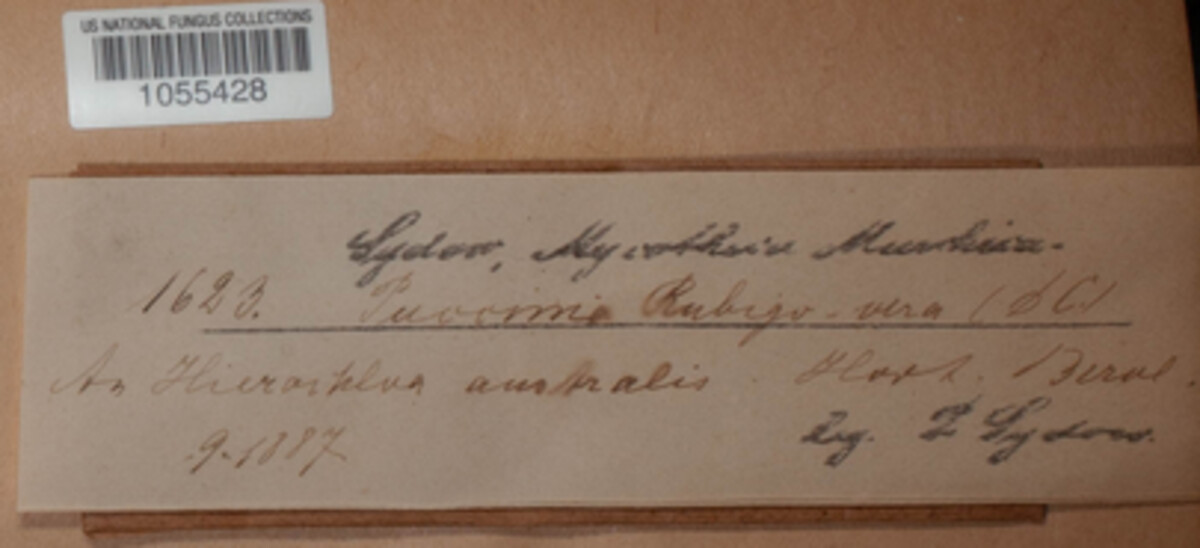 US NATIONAL FUNGUS COLLECTIONS
1055428
Sydow, Mycotheca Marchica.
1623. Puccinia Rubigo-vera (DC)
An Hierochloa australis. Hort. Berol.
9. 1887
Leg. P Sydow.